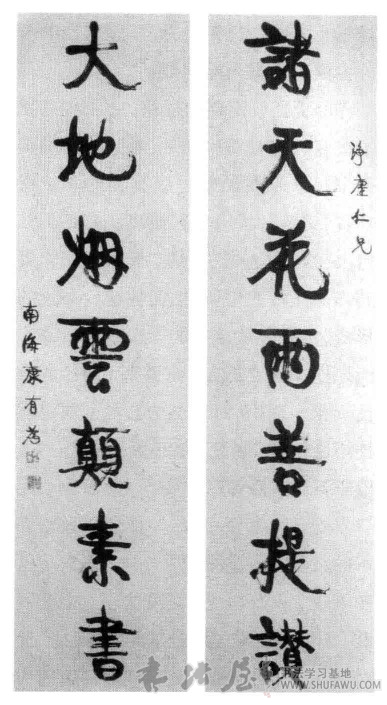 淨塵仁兄
諸天花雨菩提讚
大地烟雲顛素書
南海康有為
书法屋
书法学习基地
WWW.SHUFAWU.COM